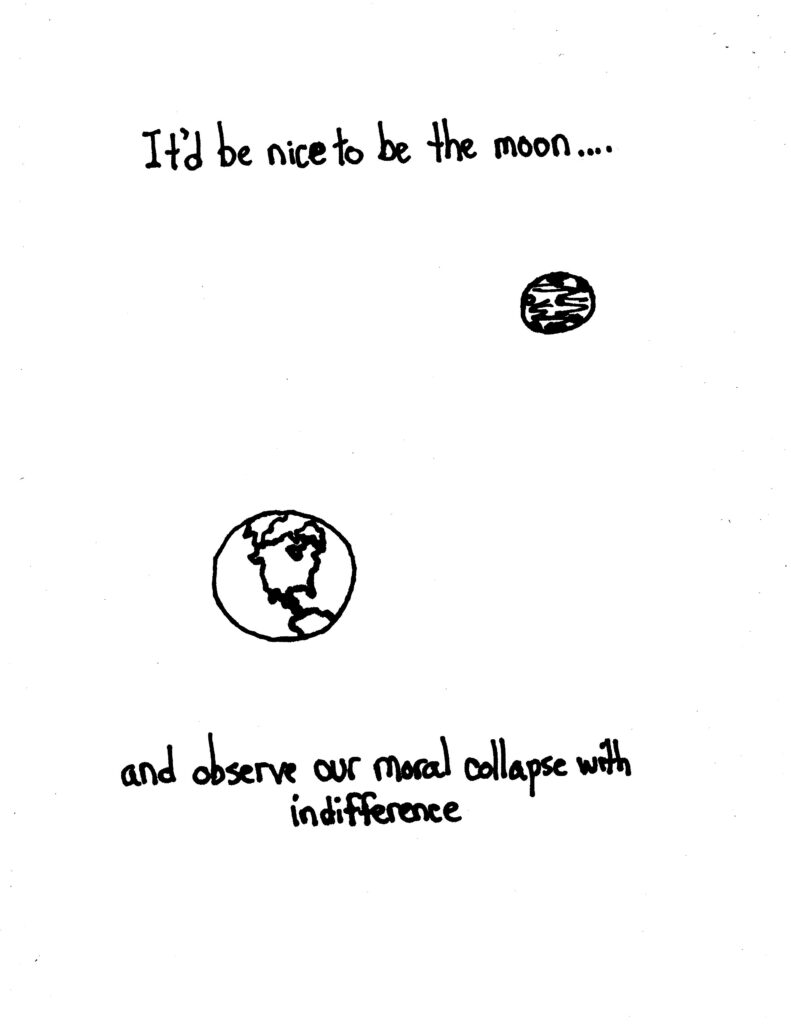 It'd be nice to be the moon....
and observe our moral collapse with
indifference